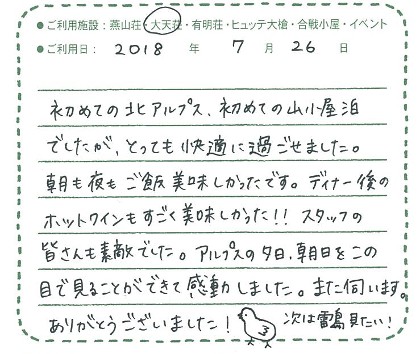 ●ご利用施設:燕山荘・大天荘・有明荘・ヒュッテ大槍・合戦小屋・イベント
●ご利用日: 2018 年 7 月 26 日
初めての北アルプス、初めての山小屋泊
でしたが、とっても快適に過ごせました。
朝も夜もご飯美味しかったです。ディナー後の
ホットワインもすごく美味しかった!! スタッフの
皆さんも素敵でした。アルプスの夕日、朝日をこの
目で見ることができて感動しました。また伺います。
ありがとうございました! 次は雷鳥見たい!